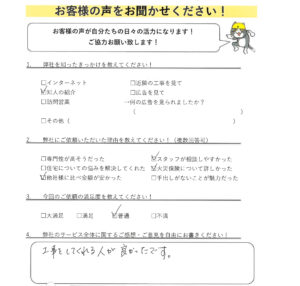 お客様の声をお聞かせください！
お客様の声が自分たちの日々の活力になります！
ご協力お願い致します！
1. 弊社を知ったきっかけを教えてください！
□インターネット □近隣の工事を見て
☑知人の紹介 □広告を見て
□訪問営業 →何の広告を見られましたか？
( )
□その他 ( )
2. 弊社にご依頼いただいた理由を教えてください！（複数回答可）
□専門性が高そうだった ☑スタッフが相談しやすかった
□住宅についての悩みを解決してくれた ☑火災保険について詳しかった
☑他社様に比べ金額が安かった □手出しがないことが魅力だった
3. 今回のご依頼の満足度を教えてください！
□大満足 □満足 ☑普通 □不満
4. 弊社のサービス全体に関するご感想・ご意見を自由にお書きください！
工事をしてくれる人が良かったです。